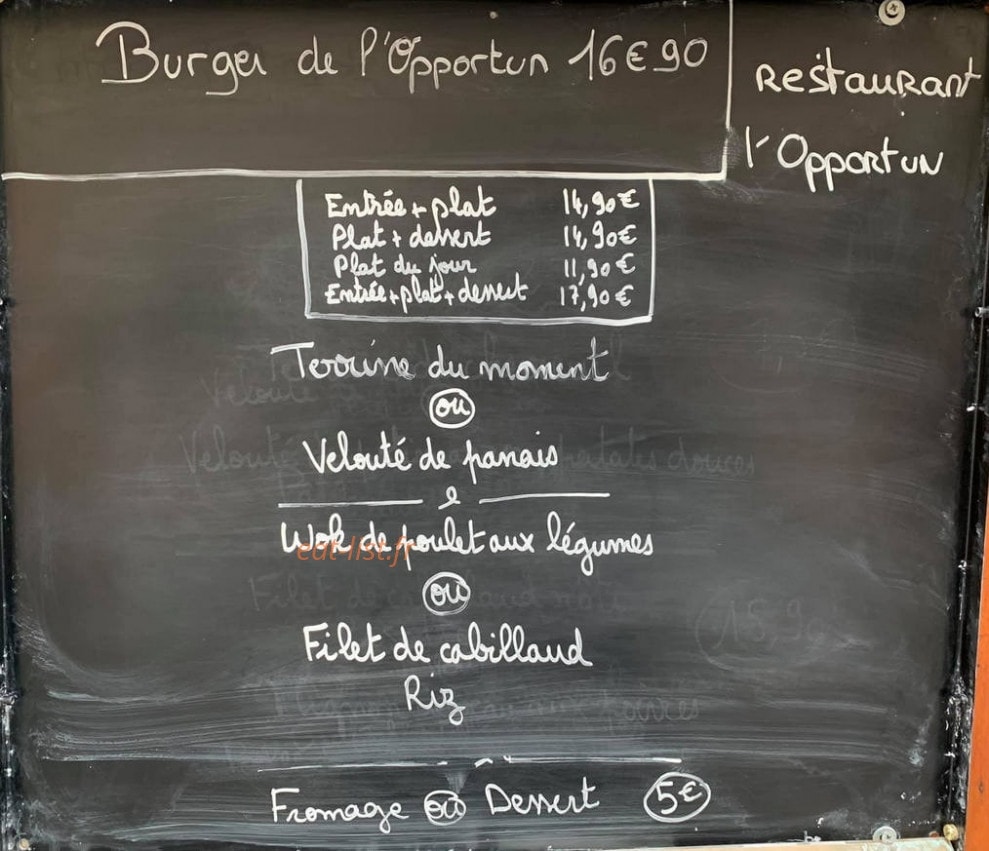 Burger de l'Opportun 16€90
Restaurant
l'Opportun
Entrée + plat 14,90€
Plat + dessert 14,90€
Plat du jour 11,90€
Entrée + plat + dessert 17,90€
Terrine du moment
ou
Velouté de panais
Wok de poulet aux légumes
eat-list.fr
ou
Filet de cabillaud
Riz
Fromage ou Dessert 5€